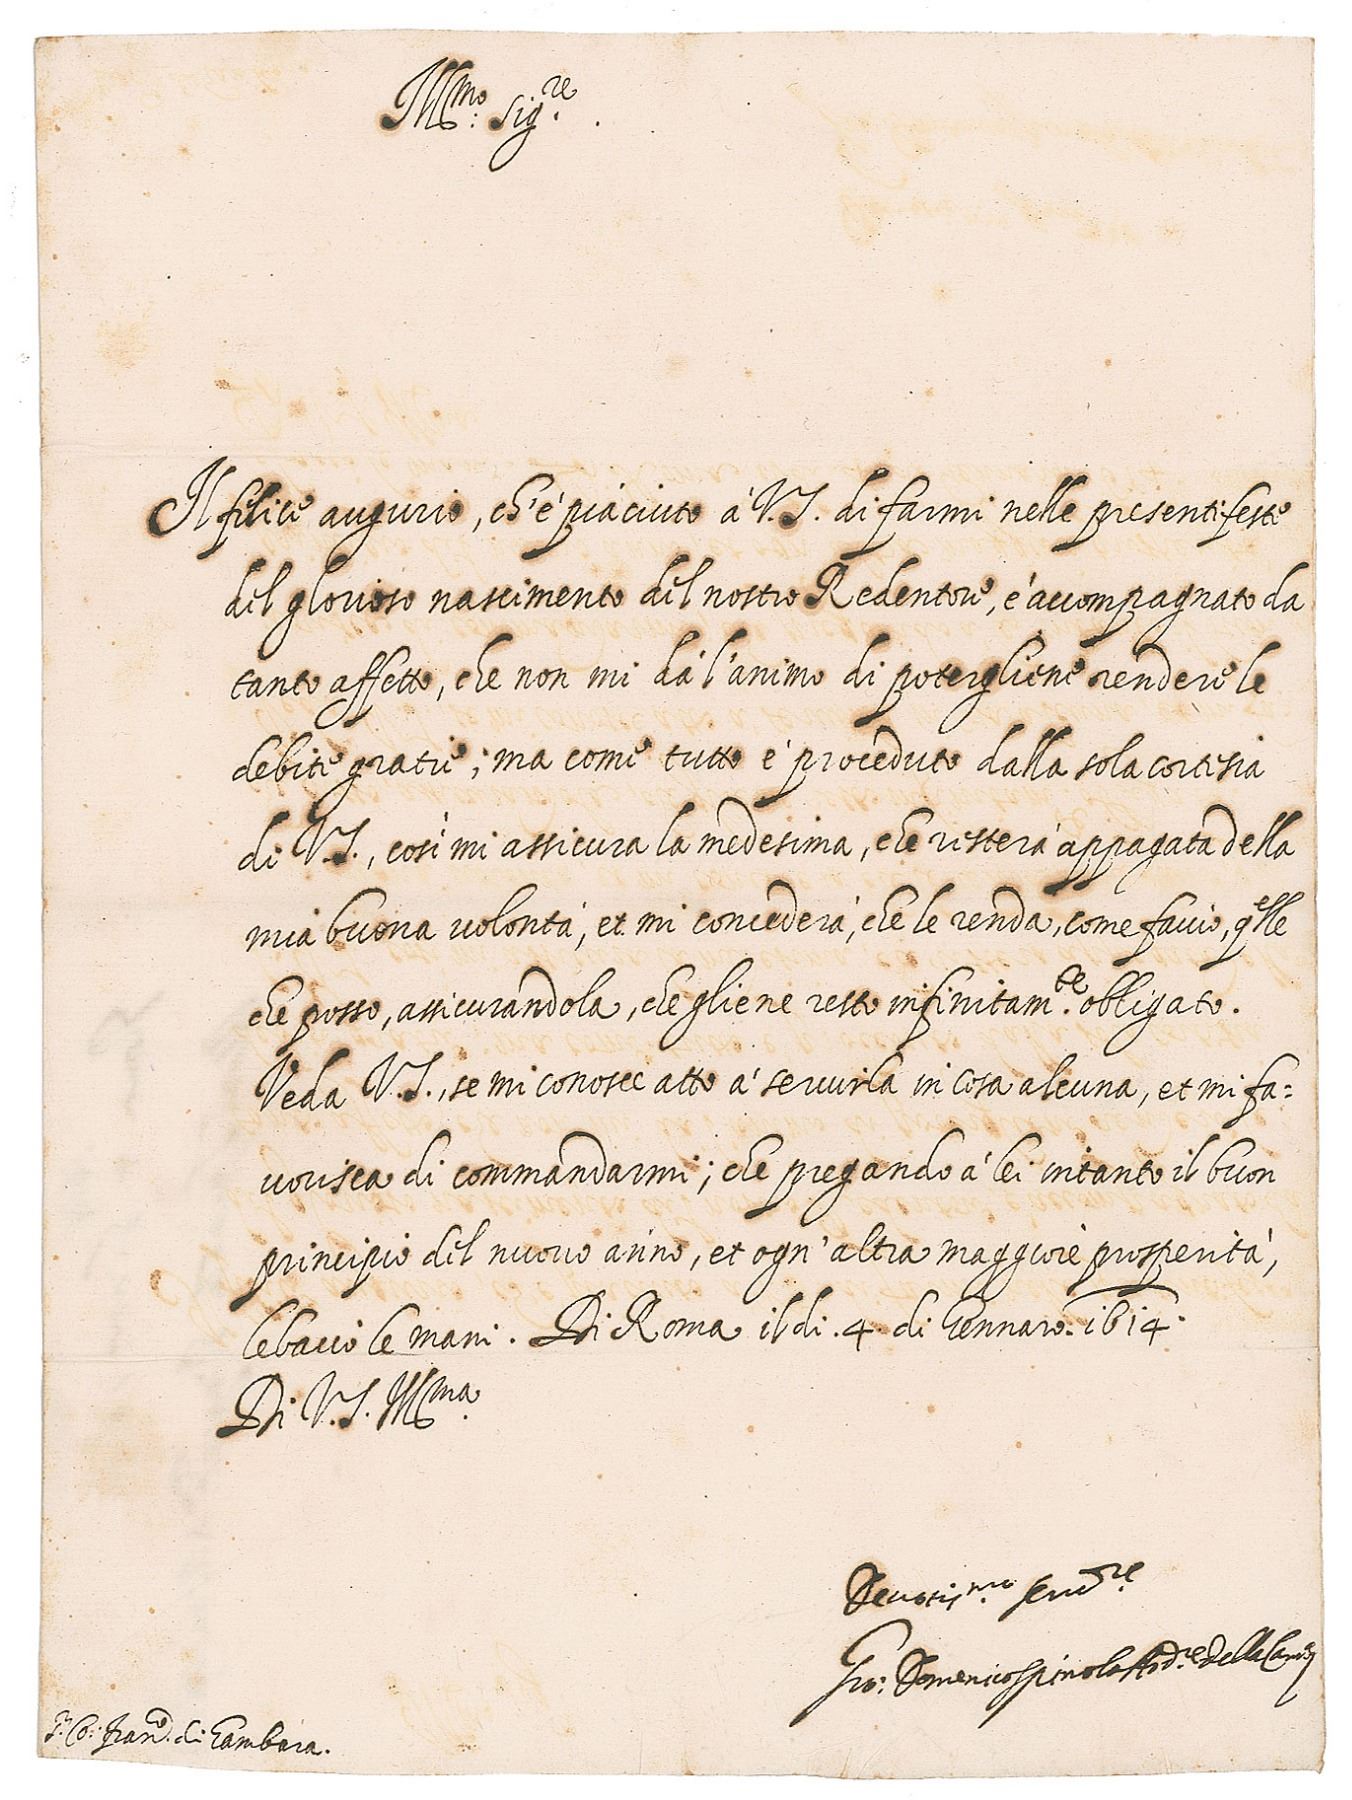 Ill.mo Sig.re
Il felice augurio, ch'è piaciuto à V.S. di farmi nelle presenti feste
del glorioso nascimento del nostro Redentore, è accompagnato da
tanto affetto, che non mi dà l'animo di potergliene rendere le
debite gratie; ma come tutto è proceduto dalla sola cortesia
di V.S., così mi assicura la medesima, che resterà appagata della
mia buona volontà, et mi concederà, che le renda, come faccio, q.elle
che posso, assicurandola, che gliene resto infinitam.te obligato.
Veda V.S., se mi conosce atto à servirla in cosa alcuna, et mi fa=
vorisca di commandarmi; che pregando à lei intanto il buon
principio del nuovo anno, et ogn'altra maggiore prosperità,
le bacio le mani. Di Roma il dì .4. di Gennaro. 1614.
Di V.S. Ill.ma
Devotiss.mo Ser.re
Gio: Domenico Spinola Aud.re della Cam.
S.r Co: Fran.co di Gambara.